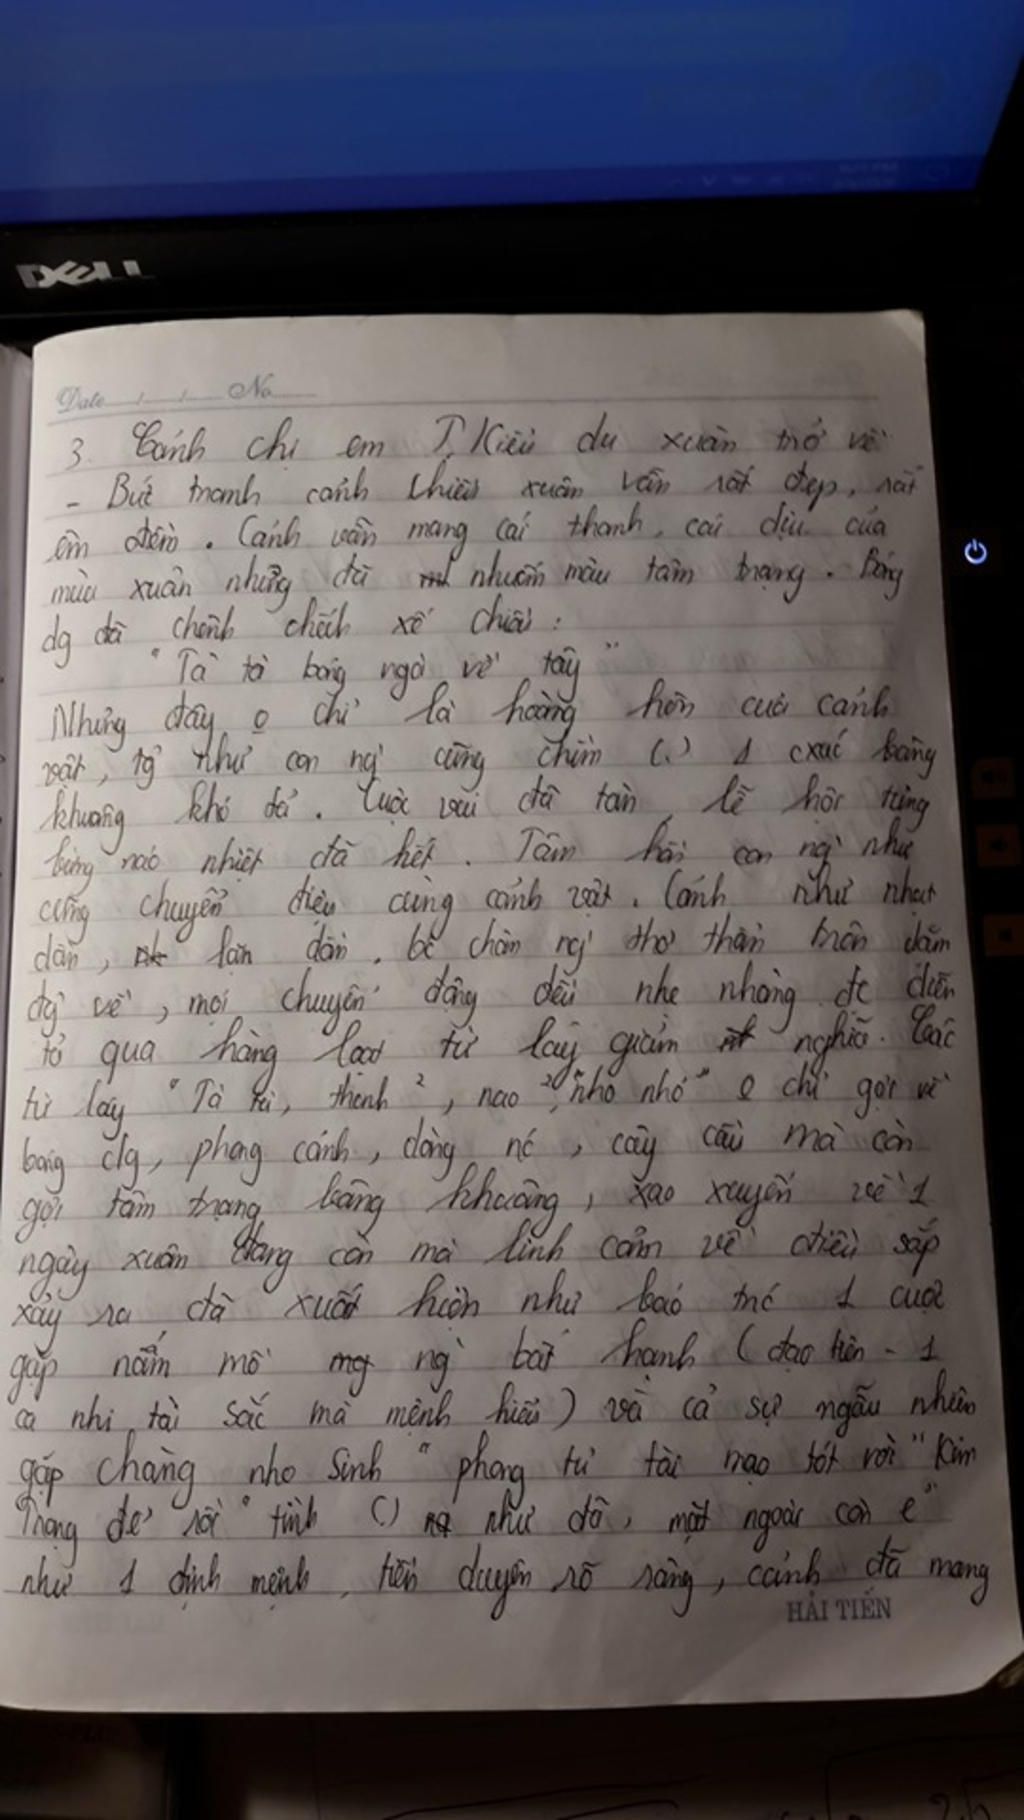 DELL
Date / / No
3. Cảnh chị em T.Kiều du xuân trở về
- Bức tranh cảnh chiều xuân vẫn rất đẹp, rất
êm đềm. Cảnh vẫn mang cái thanh, cái dịu của
mùa xuân nhưng đã nhuốm màu tâm trạng. Bóng
dg đã chênh chếch xế chiều:
"Tà tà bóng ngả về tây"
Nhưng đây o chỉ là hoàng hôn của cảnh
vật, như con ng' cũng chìm (.) 1 cxúc bâng
khuâng khó tả. Cuộc vui đã tàn, lễ hội tưng
bừng náo nhiệt đã hết. Tâm hồn con ng' như
cũng chuyển điệu cùng cảnh vật. Cảnh như nhạt
dần, lặn dần, bc chân ng' thơ thẩn trên dặm
đg về, mọi chuyển động đều nhẹ nhàng đc diễn
tả qua hàng loạt từ láy giảm nghĩa. Các
từ láy "Tà tà, thanh ², nao ², nho nhỏ" o chỉ gợi về
bóng dg, phong cảnh, dòng nc, cây cầu mà còn
gợi tâm trạng bâng khuâng, xao xuyến về 1
ngày xuân đang còn mà linh cảm về điều sắp
xảy ra đã xuất hiện như báo trc 1 cuộc
gặp nấm mồ ng' bất hạnh (đạm tiên - 1
ca nhi tài sắc mà mệnh hiểu) và cả sự ngẫu nhiên
gặp chàng nho sinh "phong tư tài mạo tót vời" Kim
Trọng để rồi "tình (.) như đã, mặt ngoài còn e"
như 1 định mệnh, tiền duyên rõ ràng, cảnh đã mang
HẢI TIẾN